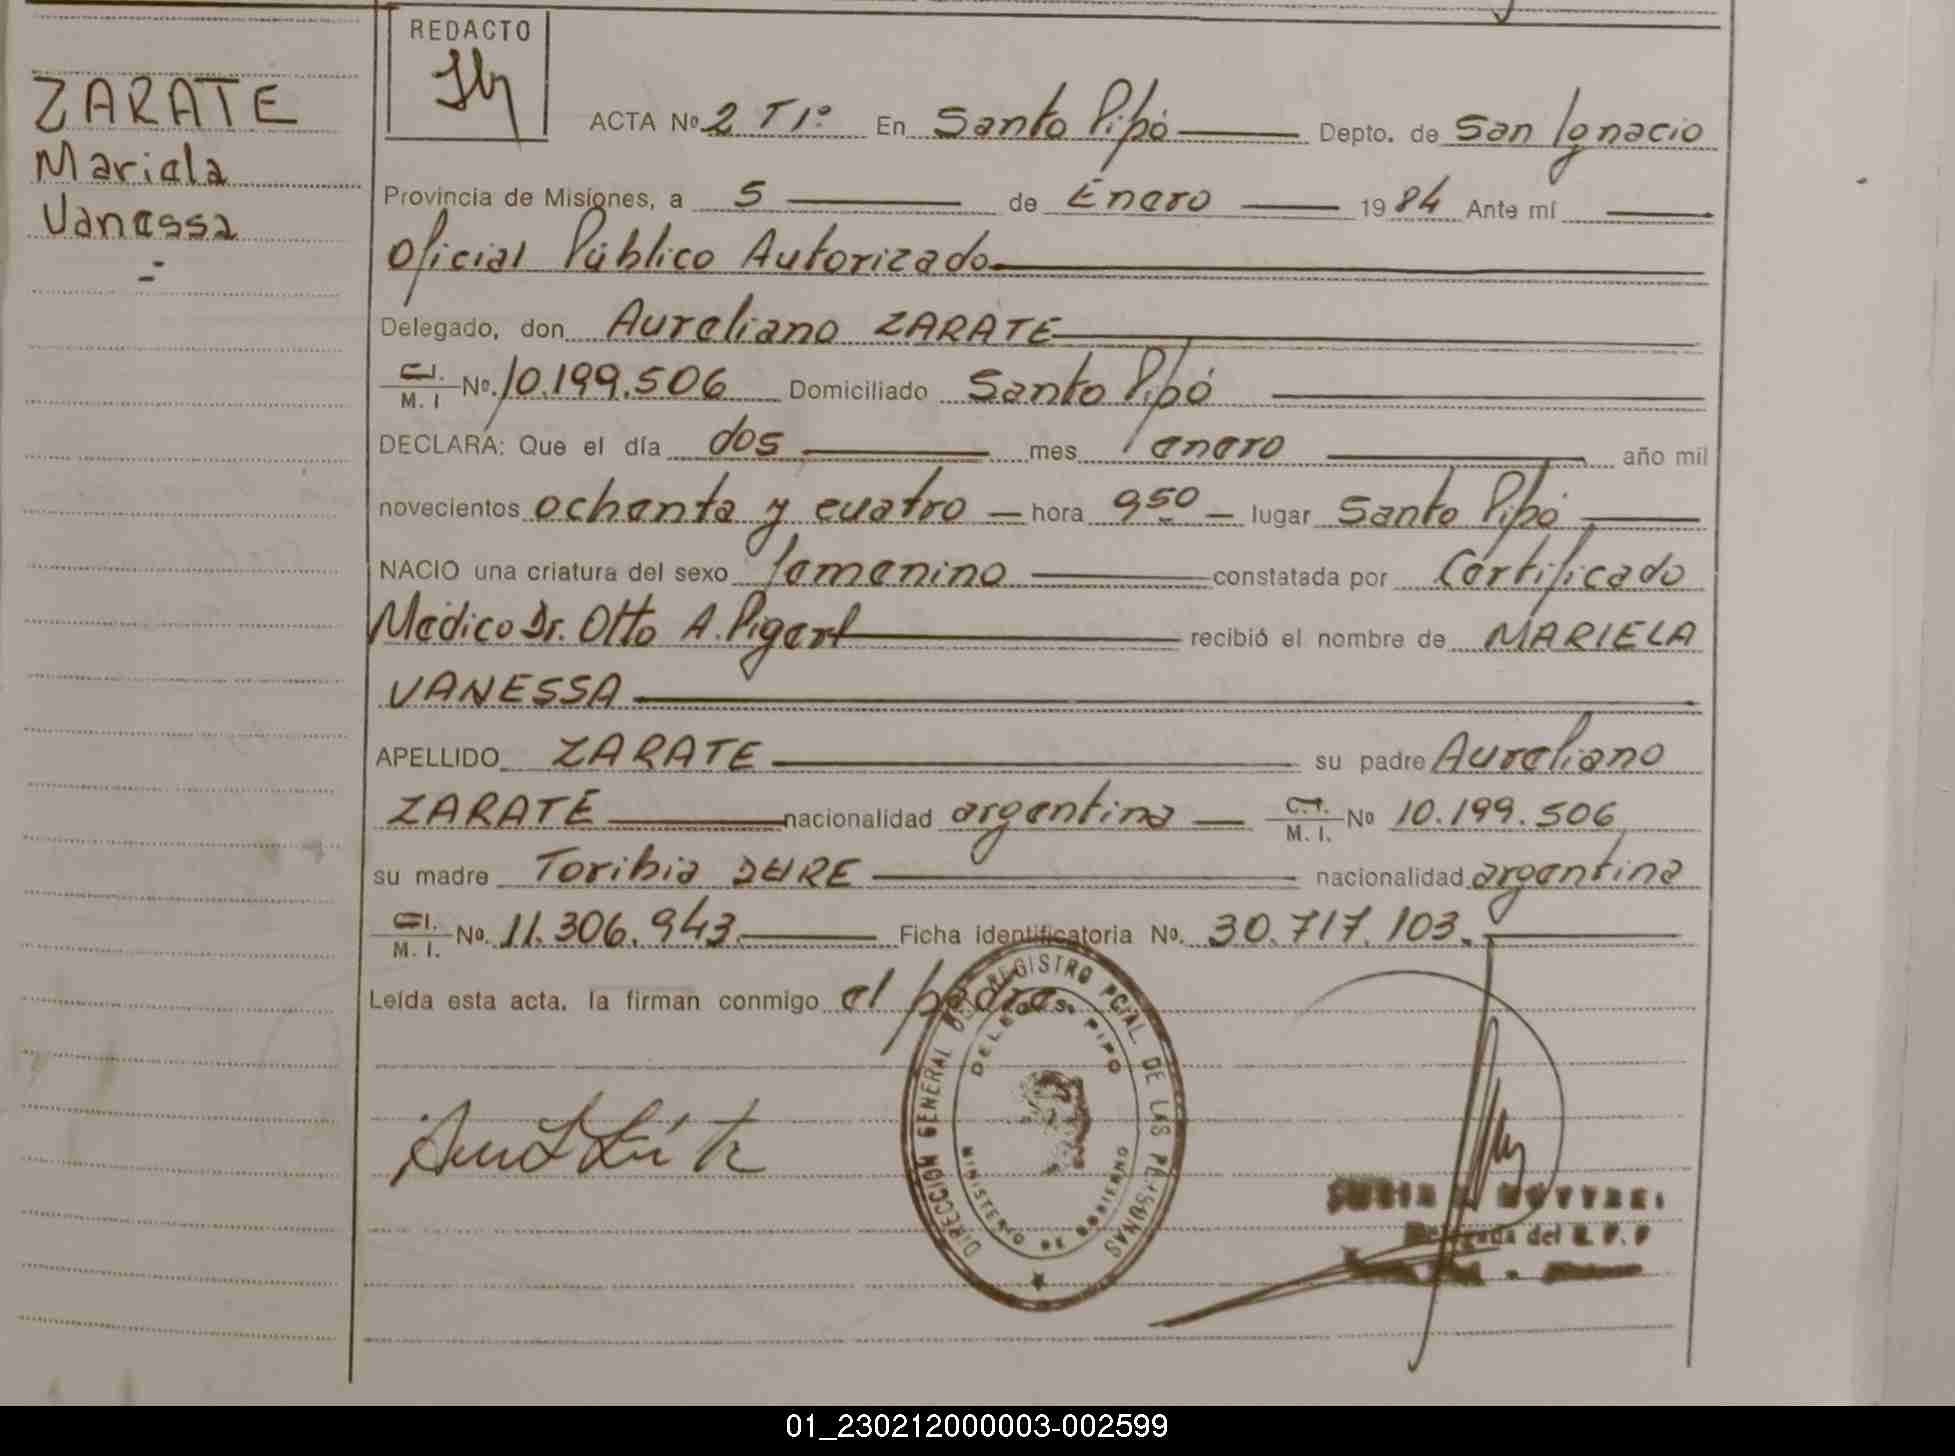 REDACTO
ZARATE
Mariela
Vanessa
ACTA Nº 2 T1º En Santo Pipó Depto. de San Ignacio
Provincia de Misiones, a 5 de Enero 1984 Ante mí
Oficial Público Autorizado
Delegado, don Aureliano ZARATE
C.I. M. I Nº. 10.199.506 Domiciliado Santo Pipó
DECLARA: Que el día dos mes enero año mil
novecientos ochenta y cuatro hora 9,50 lugar Santo Pipó
NACIO una criatura del sexo femenino constatada por Certificado
Médico Dr. Otto A. recibió el nombre de MARIELA
VANESSA
APELLIDO ZARATE su padre Aureliano
ZARATE nacionalidad argentina C.I. M. I. Nº 10.199.506
su madre Toribia nacionalidad argentina
C.I. M. I. Nº. 11.306.943 Ficha identificatoria Nº. 30.717.103.
Leída esta acta, la firman conmigo el padre
DIRECCION GENERAL DEL REGISTRO PCIAL DE LAS PERSONAS
PIPO
MINISTERIO DE GOBIERNO
del
01_230212000003-002599